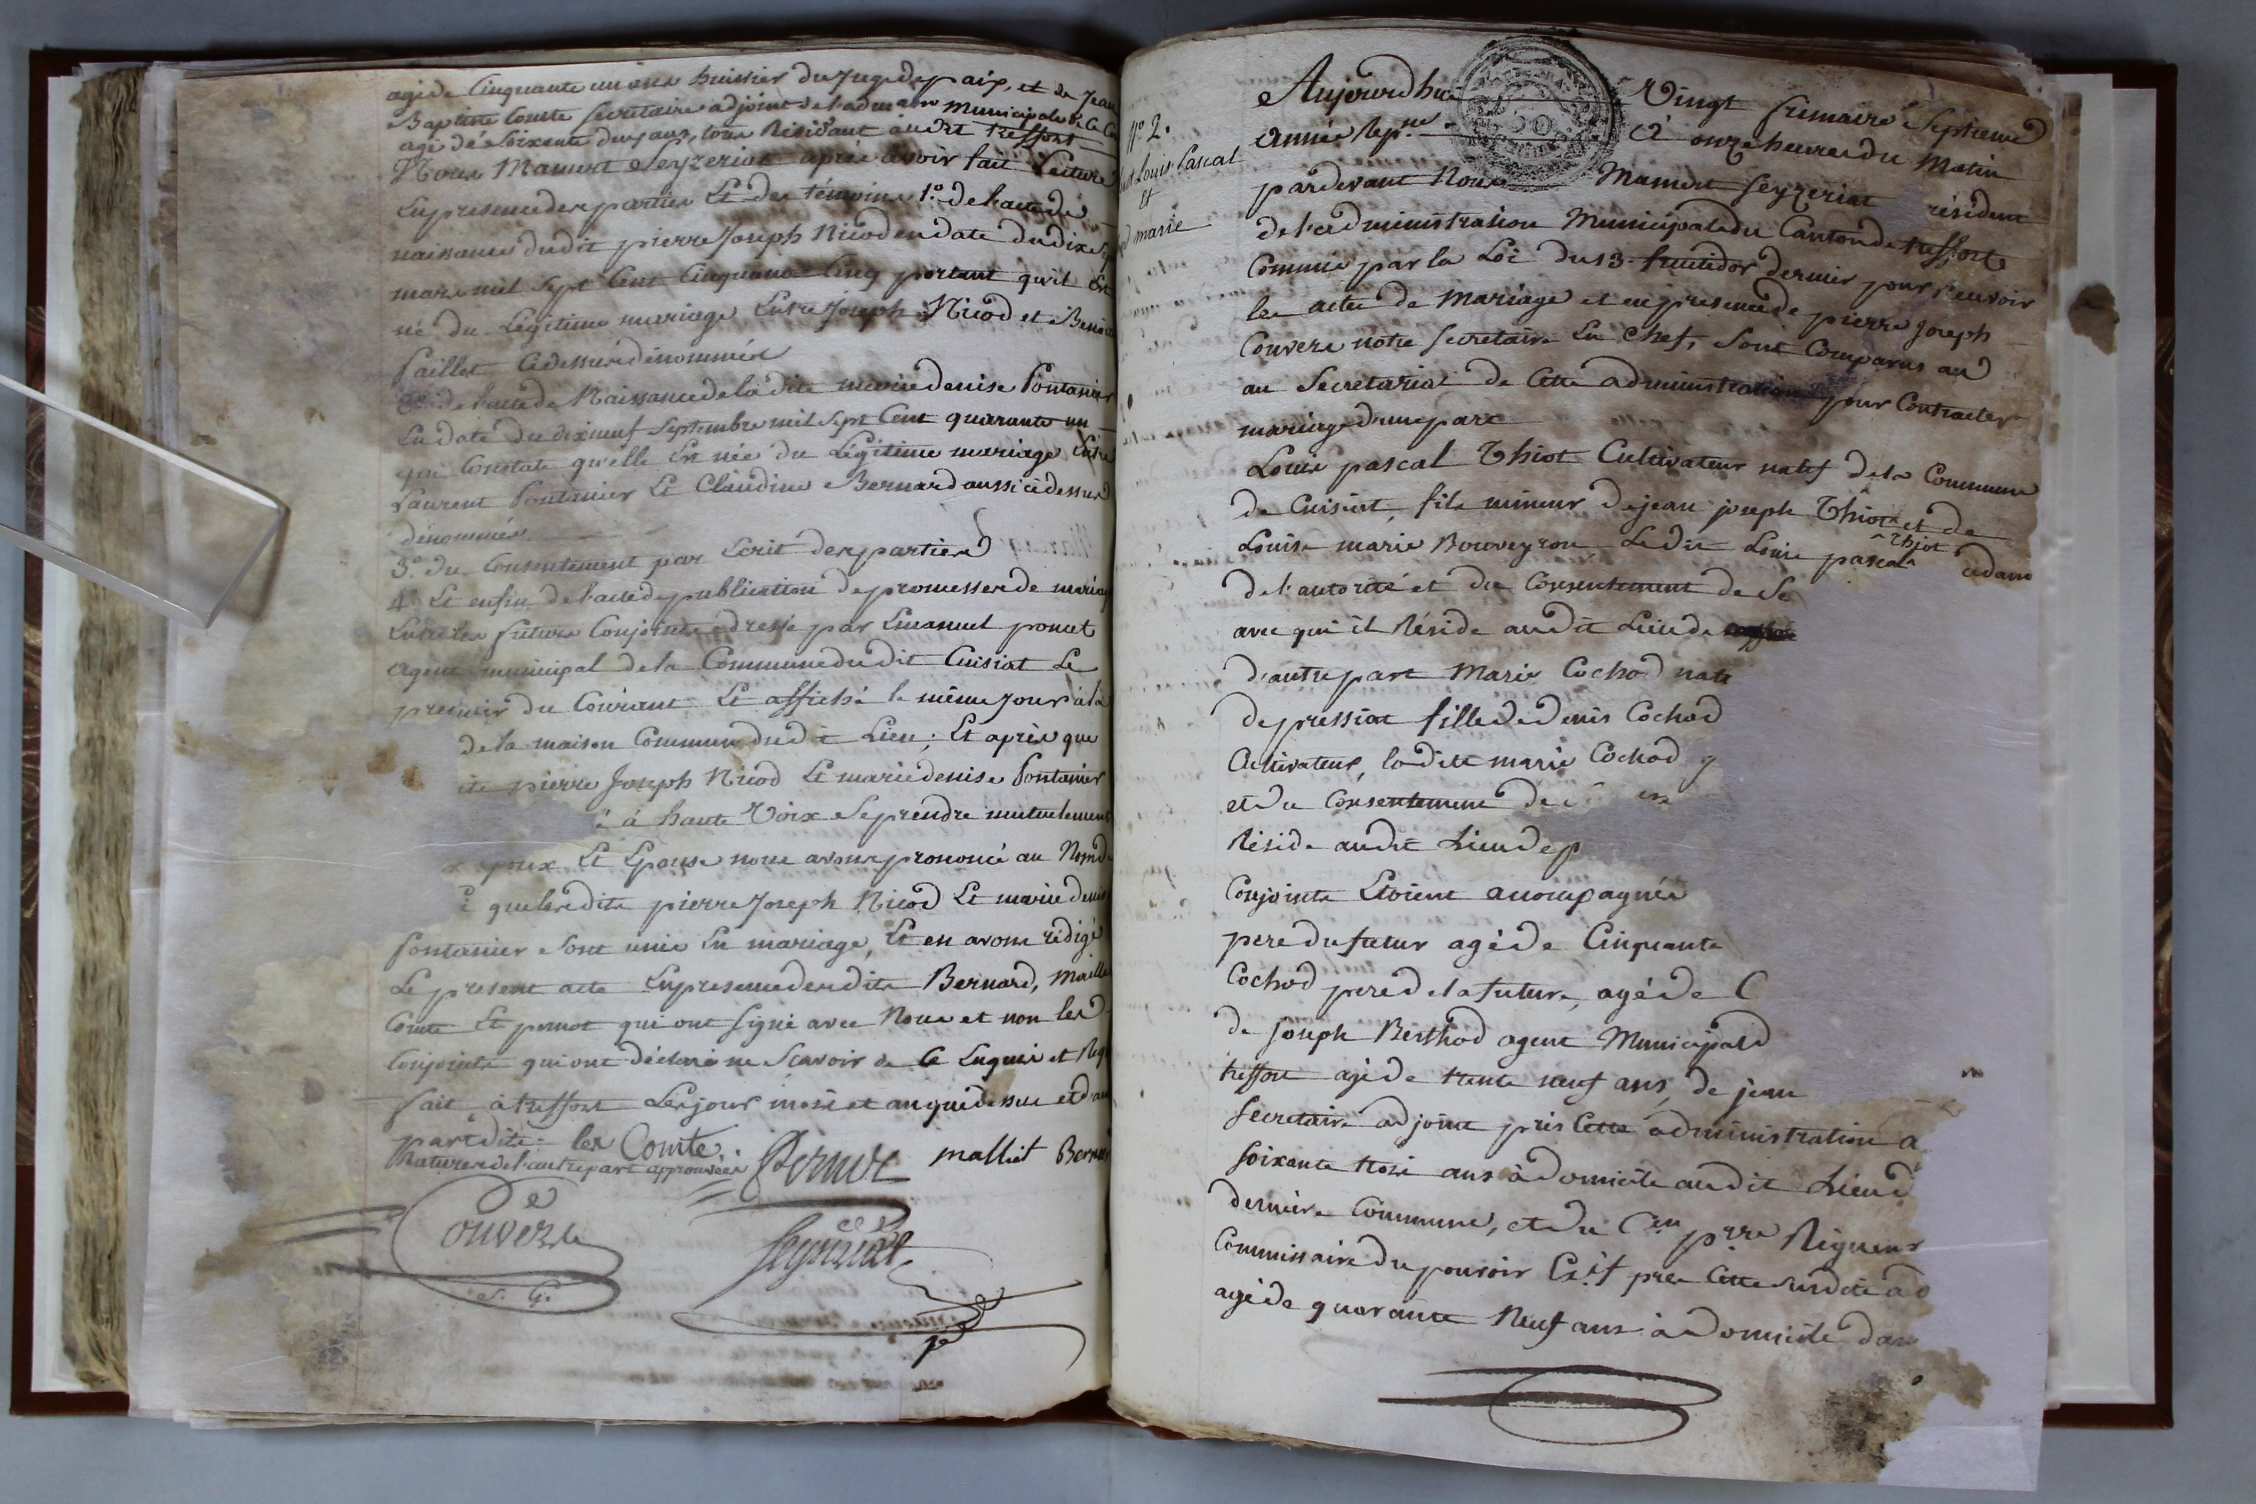 agé de Cinquante un ans huissier du Juge de paix, et de Jean
Baptiste Comte Secretaire adjoint de l'admaon Municipale
agé de Soixante deux ans, tous Résidant audit tréffort
Nous Mamert Seyzeriat après avoir fait Lecture
En presence des parties Et des témoins 1.° de l'acte de
naissance dudit pierre Joseph Nicod en date du dix
mars mil Sept Cent Cinquante Cinq portant qu'il Est
né du Légitime mariage Entre Joseph Nicod et
paillet Cidessus dénommés
2.° de l'acte de Naissance de la dite marie denise Pontanier
En date du dixneuf Septembre mil Sept Cent quarante un
qui Constate qu'elle Est née du Légitime mariage Entre
Laurent Pontanier Et Claudine Bernard aussi cidessus
dénommés
3.° du Consentement par Ecrit des parties
4.° Et enfin de l'acte de publication de promesses de mariage
Entre les futurs Conjoints dressé par Emanuel pomet
agent municipal de la Commune dudit Cuisiat Le
premier du Courant Et affiché le même Jour à la
de la maison Commune dudit Lieu; Et après que
pierre Joseph Nicod Et marie denise Pontanier
à haute Voix Se prendre mutuelement
Epoux Et Epouse nous avons prononcé au Nom de
que lesdits pierre Joseph Nicod Et marie denise
Pontanier Sont unis En mariage, Et en avons rédigé
Le present acte En presence desdits Bernard, Maillet
Comte Et pernot qui ont Signé avec Nous et non les d
Conjoints qui ont déclaré ne Scavoir de Ce Enquis et Requis
fait à treffort Les jour mois et an que dessus et d'autre
part dite les
Ratures de l'autre part approuvées Comte Pernot mallict Bernard
Couvers Seyzeriat
S. G.
Nº 2.
Louis Pascal
Et
marie
Aujourdhui Vingt frimaire Septieme
année Repne à onze heures du Matin
pardevant Nous Mamert Seyzeriat résident
de l'administration Municipale du Canton de treffort
Commis par la Loi du 13 fructidor dernier pour recevoir
les actes de Mariage et en presence de pierre Joseph
Couvers notre Secretaire En Chef, Sont Comparus au
au Secretariat de Cette administration pour Contracter
mariage d'une part
Louis pascal Thiot Cultivateur natif de la Commune
de Cuisiat, fils mineur de jean joseph Thiot et de
Louise marie Bouveyron Ledit Louis pascal Thiot
de l'autorité et du Consentement de Se
avec qui il Réside audit Lieu de
d'autre part Marie Cochod nati
de pressiat fille de denis Cochod
Cultivateur, ladite marie Cochod
et du Consentement de
Réside audit Lieu de p
Conjoints Etoient accompagnés
pere du futur agé de Cinquante
Cochod pere de la future, agé de C
de Joseph Berthod agent Municipal d
treffort agé de trente neuf ans, de jean
Secretaire adjoint près Cette administration a
soixante trois ans à domicile audit Lieu d
derniere Commune, et du Cen pre
Commissaire du pouvoir Exif près Cette susdite ad
agé de quarante Neuf ans à domicile dan